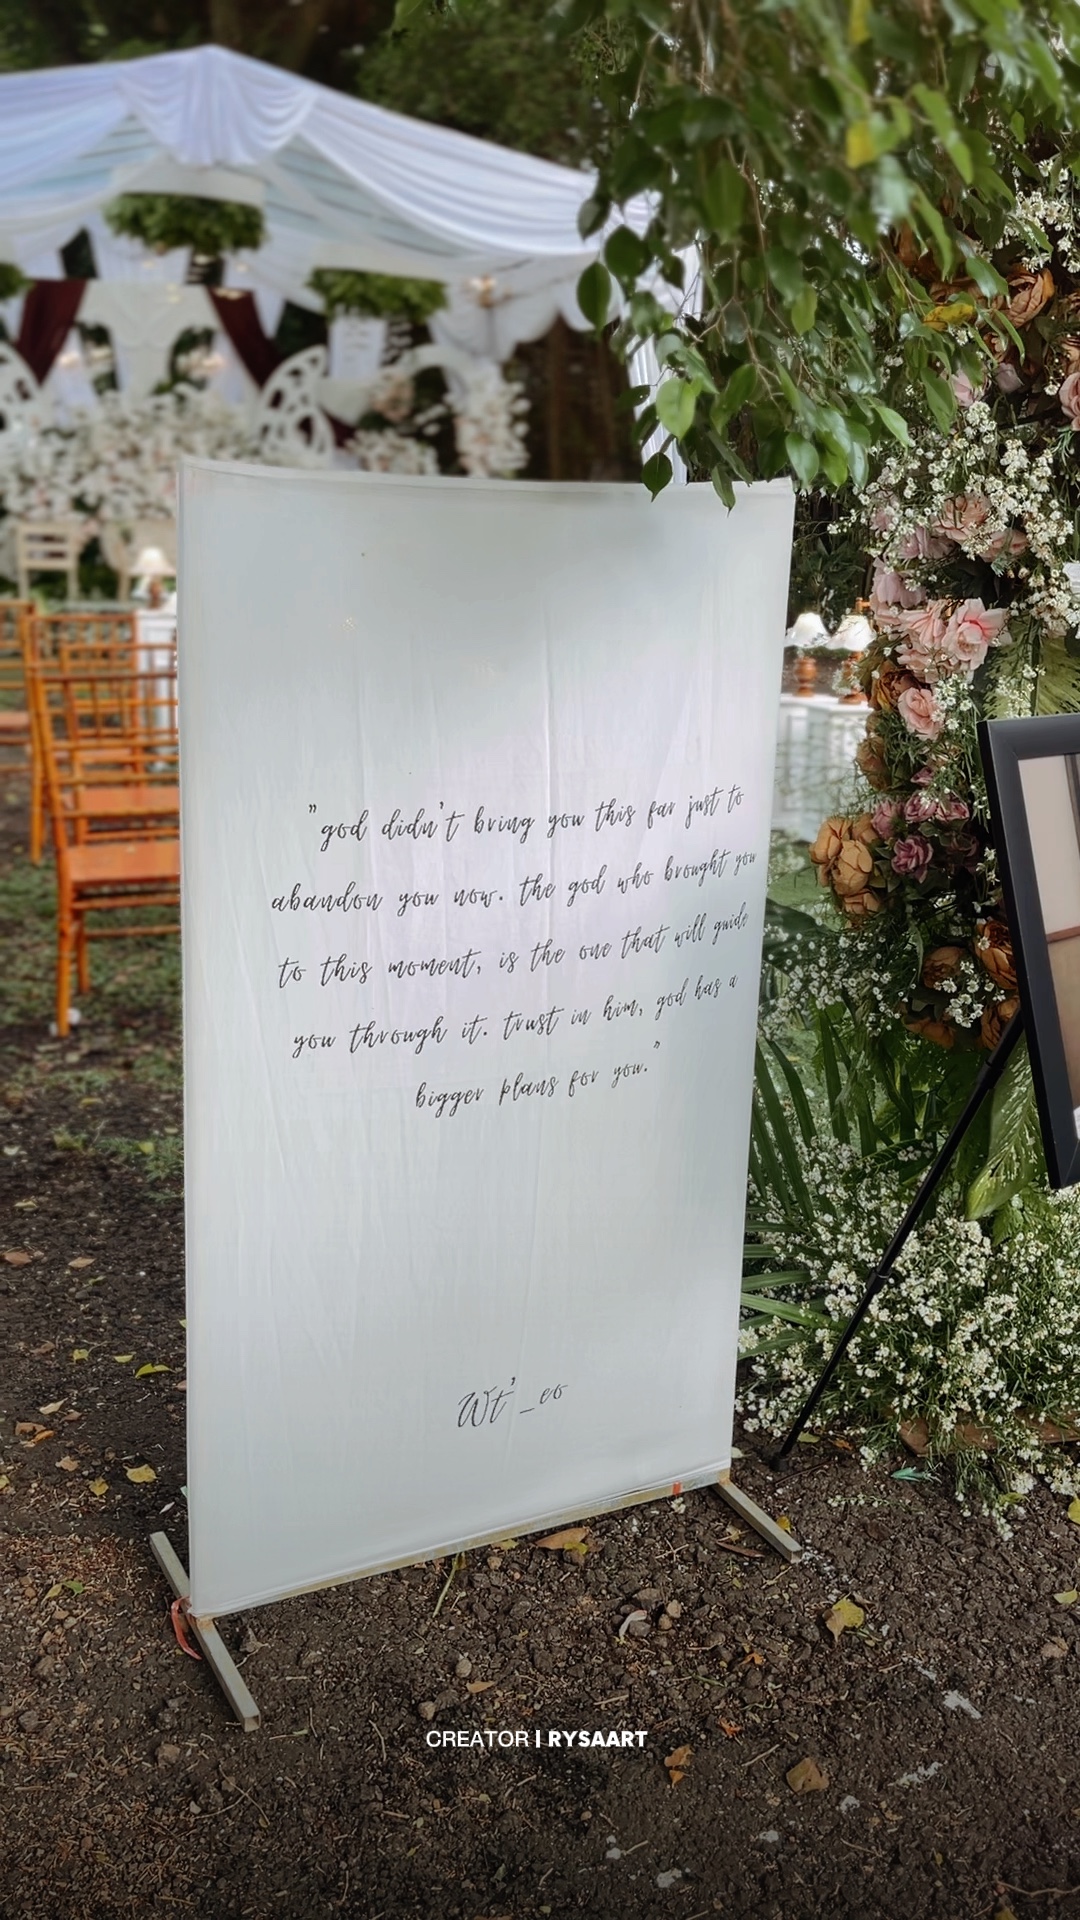 "god didn't bring you this far just to
abandon you now. the god who brought you
to this moment, is the one that will guide
you through it. trust in him, god has a
bigger plans for you."
Wt'_eo
CREATOR | RYSAART